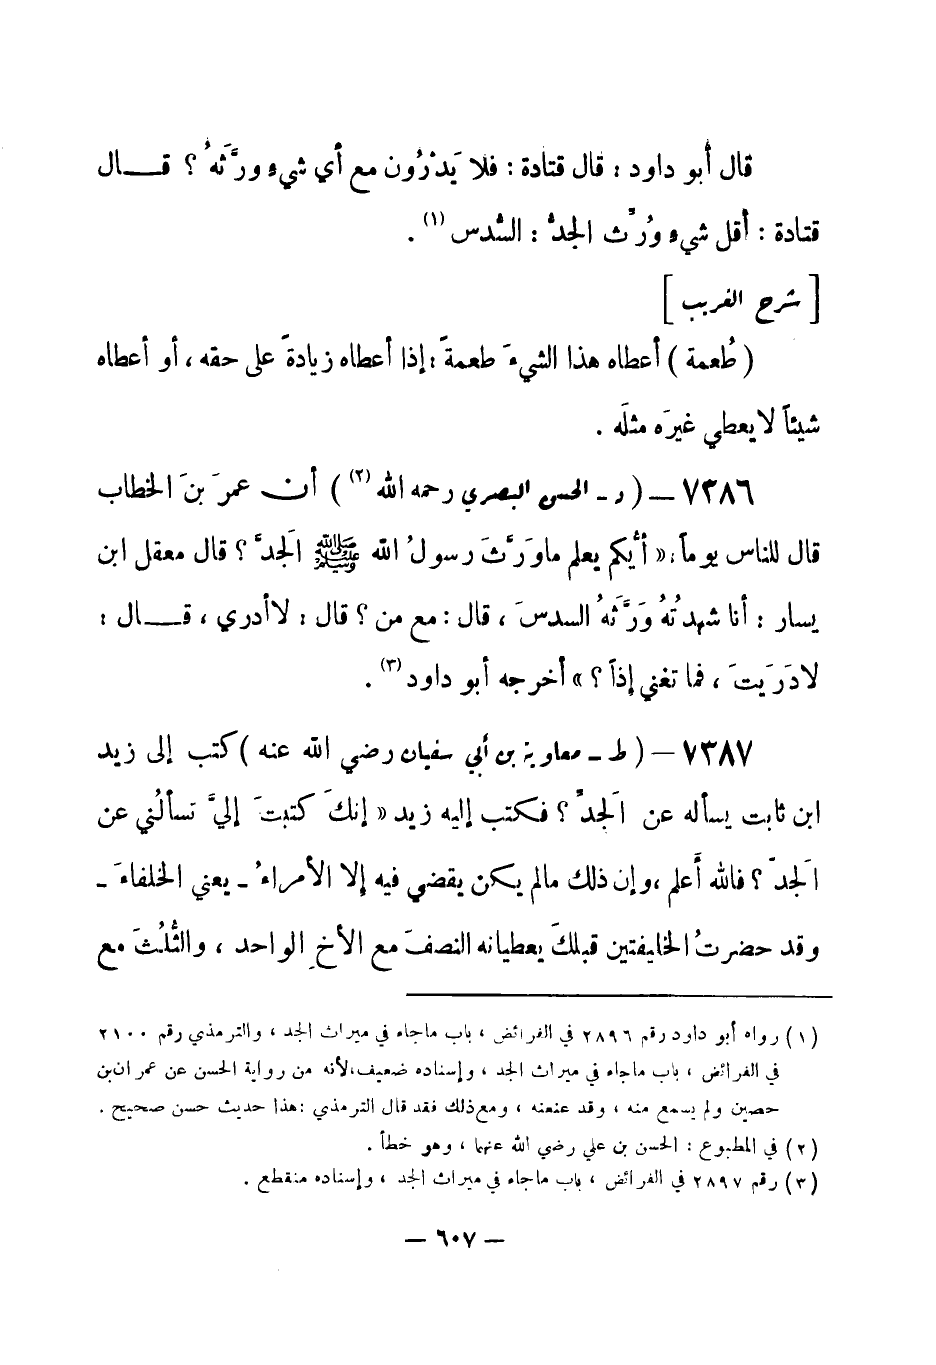 قال أبو داود : قال قتادة : فلا يَدْرُون مع أي شيء ورَّثَهُ ؟ قــال
قتادة : أقل شيء وُرِّث الجدُّ : السُّدس (١) .
[ شرح الغريب ]
( طُعمة ) أعطاه هذا الشيءَ طعمةً : إذا أعطاه زيادةً على حقه ، أو أعطاه
شيئاً لا يعطي غيرَه مثلَه .
٧٣٨٦ – ( د - الحسن البصري رحمه الله (٢) ) أن عمرَ بنَ الخطاب
قال للناس يوماً : « أيُّكم يعلم ماوَرَّثَ رسولُ الله ﷺ الجدَّ ؟ قال معقل ابن
يسار : أنا شهدتُهُ وَرَّثَهُ السدسَ ، قال : مع من ؟ قال : لا أدري ، قــال :
لا دَرَيتَ ، فما تغني إذاً ؟ » أخرجه أبو داود (٣) .
٧٣٨٧ – ( ط - معاوية بن أبي سفيان رضي الله عنه ) كتب إلى زيد
ابن ثابت يسأله عن الجدِّ ؟ فكتب إليه زيد « إنكَ كتبتَ إليَّ تسألُني عن
الجدّ ؟ فالله أعلم ، وإن ذلك مالم يكن يقضي فيه إلا الأمراءُ - يعني الخلفاءَ -
وقد حضرتُ الخليفتين قبلكَ يعطيانه النصفَ مع الأخِ الواحد ، والثُّلُثَ مع
(١) رواه أبو داود رقم ٢٨٩٦ في الفرائض ، باب ماجاء في ميراث الجد ، والترمذي رقم ٢١٠٠
في الفرائض ، باب ماجاء في ميراث الجد ، وإسناده ضعيف، لأنه من رواية الحسن عن عمران بن
حصين ولم يسمع منه ، وقد عنعنه ، ومع ذلك فقد قال الترمذي : هذا حديث حسن صحيح .
(٢) في المطبوع : الحسن بن علي رضي الله عنهما ، وهو خطأ .
(٣) رقم ٢٨٩٧ في الفرائض ، باب ماجاء في ميراث الجد ، وإسناده منقطع .
– ٦٠٧ –